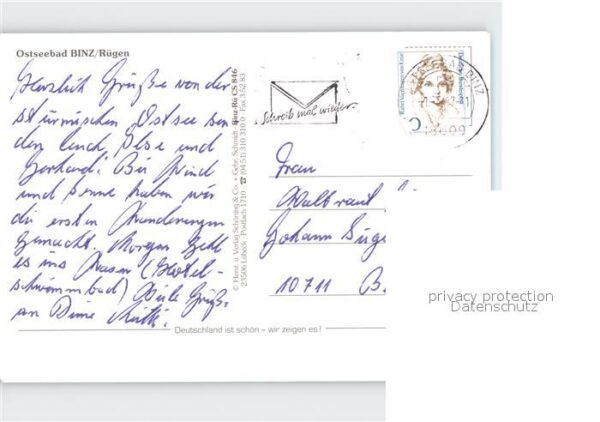 Ostseebad BINZ/Rügen
Herzlich Grüße von der
stürmischen Ostsee sen
den Euch, Ilse und
Gerhard! Bei Wind
und Sonne haben wir
die ersten Wanderungen
gemacht. Morgen geht
es ins Wasser (Hotel-
schwimmbad) Viele Grüße
an Deine
© Herst. u. Verlag Schöning & Co. + Gebr. Schmidt
23506 Lübeck · Postfach 1710 · ☎ (04 51) 310 310 · Fax 3 52 83
Binz-Rü CS 846
Schreib mal wieder
BINZ
18609
Frau
Waltraut
Johann
10711 B
Deutschland ist schön – wir zeigen es!
privacy protection
Datenschutz